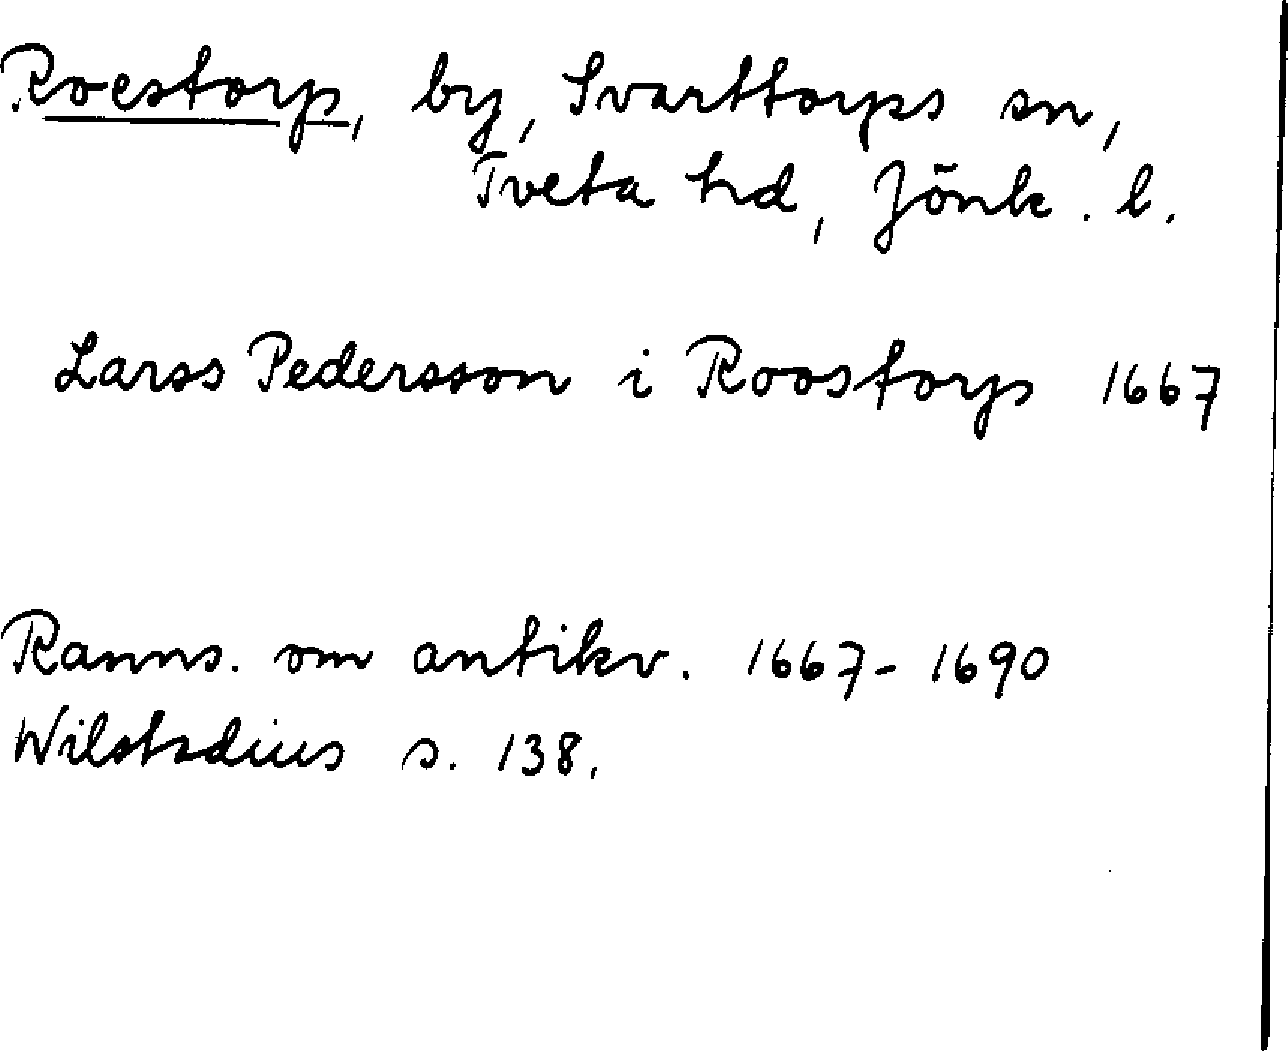 Roestorp, by, Svarttorps sn,
Tveta hd, Jönk. l.
Larss Pedersson i Roostorp 1667
Ranns. om antikv. 1667-1690
Wilstadius s. 138.